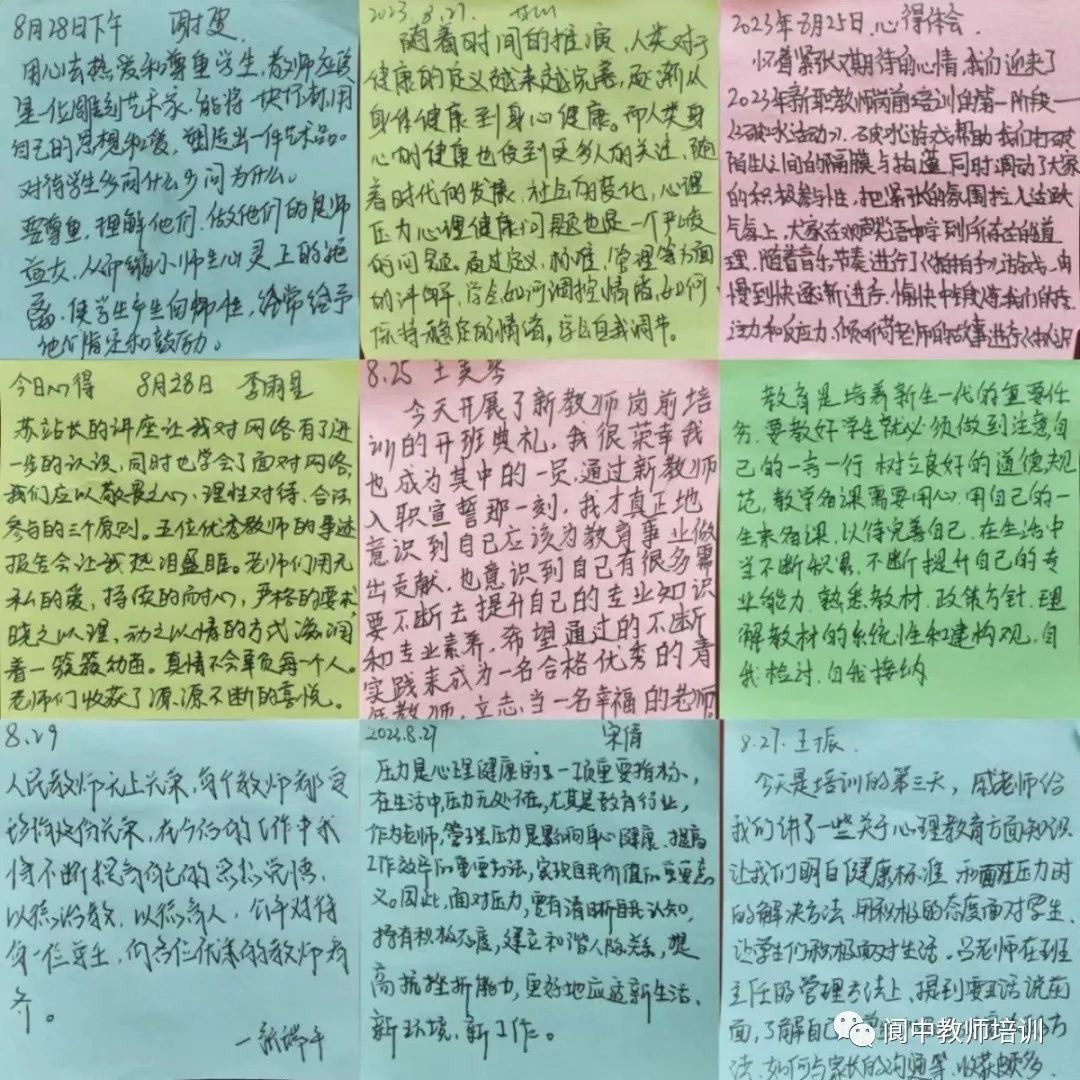 8月28日下午 谢雯
用心去热爱和尊重学生,教师应该
是一位雕刻艺术家,能将一块坏料,用
自己的思想和爱,塑造出一件艺术品。
对待学生多问什么少问为什么。
要尊重,理解他们,做他们的良师
益友,从而缩小师生心灵上的距
离,使学生产生向师性,经常给予
他们肯定和鼓励。
2023.8.27.
随着时间的推演,人类对于
健康的定义越来越完善,逐渐从
身体健康到身心健康。而人类身
心的健康也受到更多人的关注,随
着时代的发展,社会的变化,心理
压力心理健康问题也是一个严峻
的问题。通过定义,标准,管理等方面
的讲解,学会如何调控情绪,如何
保持稳定的情绪,学会自我调节。
2023年8月25日心得体会
怀着紧张又期待的心情,我们迎来了
2023年新职教师岗前培训的第一阶段—
《破冰活动》。破冰游戏帮助我们打破
陌生人之间的隔膜与拘谨,同时调动了大家
的积极参与性,把紧张的氛围拉入活跃
气氛上,大家在欢声笑语中学到所存在的道
理,随着音乐节奏进行了《拍拍手》游戏,由
慢到快逐渐进行,愉快中锻炼我们的专
注力和反应力,倾听苟老师的故事进行《抓
今日心得 8月28日 李雨星
苏站长的讲座让我对网络有了进
一步的认识,同时也学会了面对网络,
我们应以敬畏之心,理性对待,合法
参与的三个原则。五位优秀教师的事迹
报告会让我热泪盈眶。老师们用无
私的爱,持续的耐心,严格的要求,
晓之以理,动之以情的方式滋润
着一簇簇幼苗。真情不会辜负每一个人。
老师们收获了源源不断的喜悦。
8.25 王美琴
今天开展了新教师岗前培
训的开班典礼,我很荣幸我
也成为其中的一员,通过新教师
入职宣誓那一刻,我才真正地
意识到自己应该为教育事业做
出贡献,也意识到自己有很多需
要不断去提升自己的专业知识
和专业素养,希望通过的不断
实践来成为一名合格优秀的青
年教师,立志,当一名幸福的老师。
教育是培养新生一代的重要任
务,要教好学生就必须做到注意自
己的一言一行 树立良好的道德规
范,教学备课需要用心,用自己的一
生来备课,以待完善自己,在生活中
当不断积累,不断提升自己的专
业能力,熟悉教材,政策方针,理
解教材的系统性和建构观,自
我检讨,自我接纳
8.29
人民教师无上光荣,每个教师都应
该珍惜这份光荣,在今后的工作中我
将不断提高自己的思想觉悟,
以德治教,以德育人,公平对待
每一位学生,向各位优秀的教师看
齐。
2023.8.27 宋倩
压力是心理健康的一项重要指标,
在生活中,压力无处不在,尤其是教育行业,
作为老师,管理压力是影响身心健康,提高
工作效率的重要方法,实现自我价值的重要意
义。因此,面对压力,要有清晰自我认知,
持有积极态度,建立和谐人际关系,提
高抗挫折能力,更好地应这新生活、
新环境,新工作。
8.27. 王振.
今天是培训的第三天,戚老师给
我们讲了一些关于心理教育方面知识
让我们明白健康标准 和面对压力时
的解决方法,用积极的态度面对学生,
让学生们积极面对生活。吕老师在班
主任的管理方法上,提到要把话说在
面,了解自己
法,如何与家长的沟通等,收获颇多.
阆中教师培训